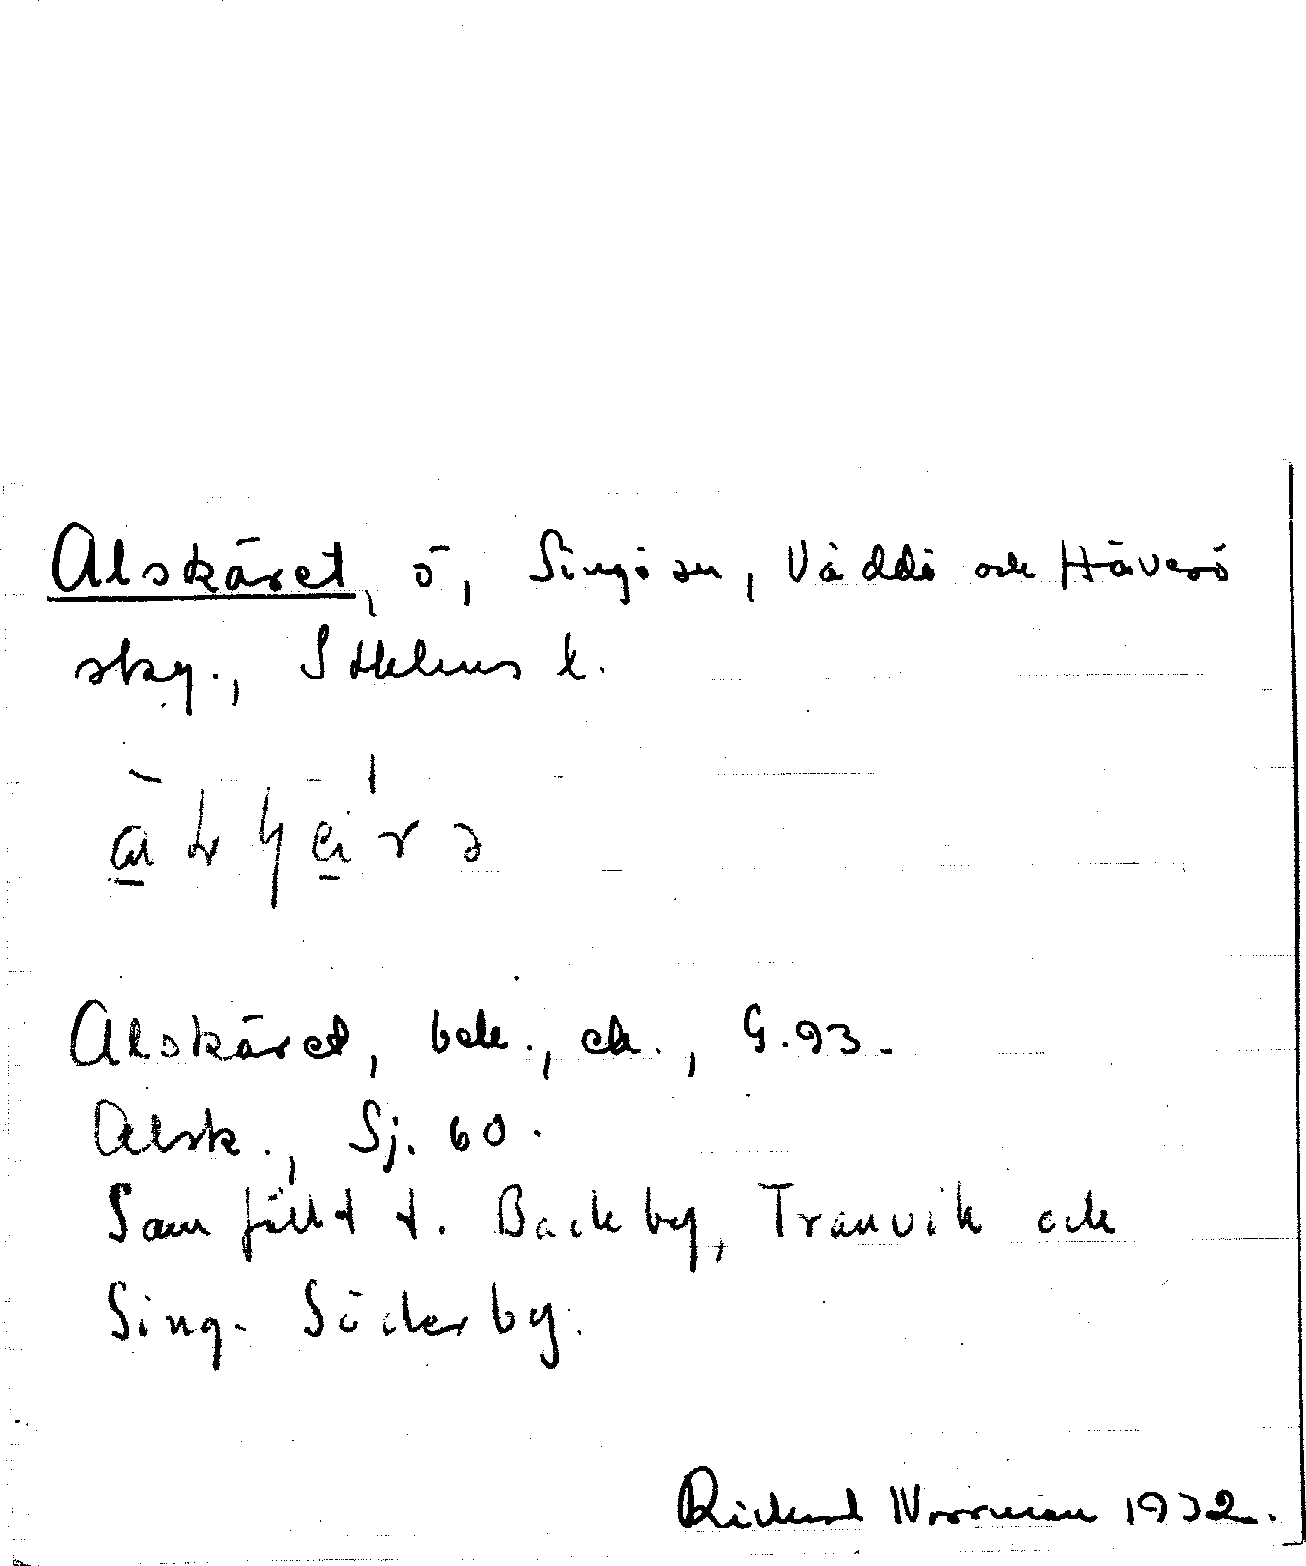 Alskäret, ö, Singö sn, Väddö och Häverö
skg., Sthlms l.
Alskäret, bek., ek., G. 93.
Alsk., Sj. 60.
Samfällt t. Backby, Tranvik och
Sing. Söderby.
Rickard Norrman 1932.